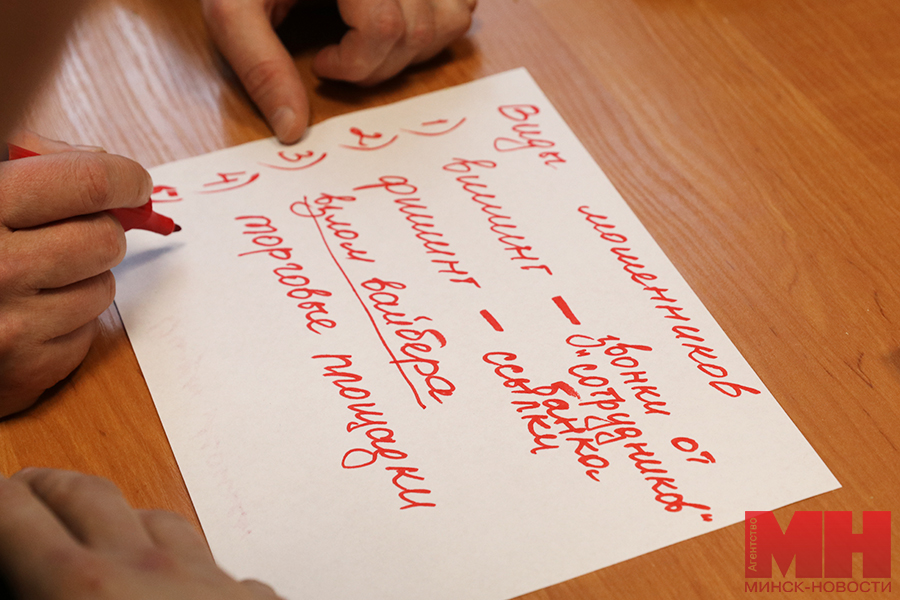 Виды мошенников
1) вишинг – звонки от
"сотрудников"
банка
2) фишинг – ссылки
3) взлом вайбера
4) торговые площадки
5)
Агентство
МН
МИНСК-НОВОСТИ